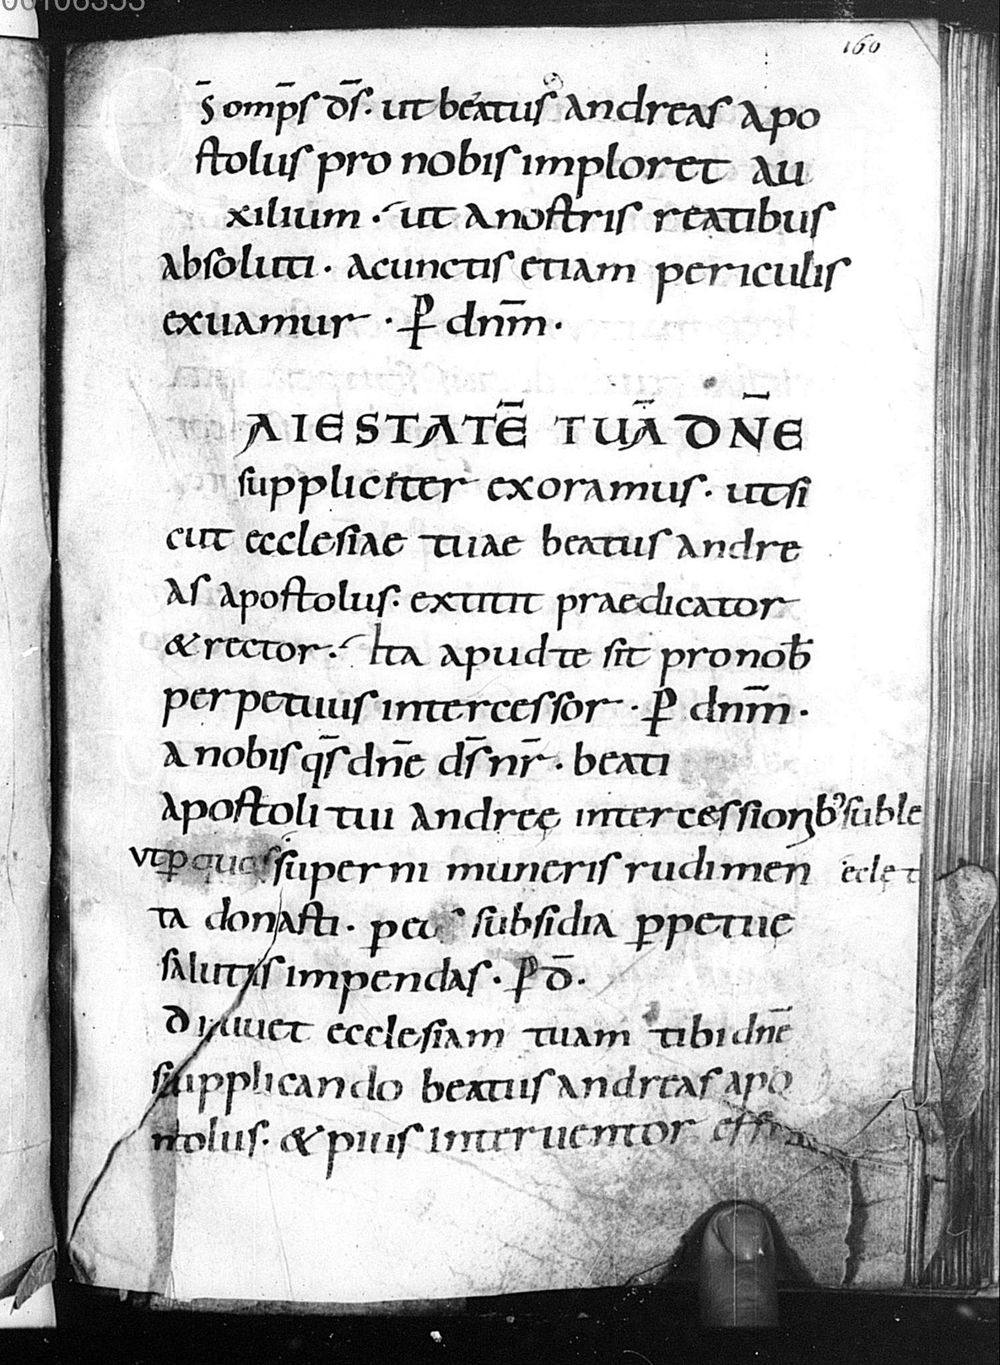 00106353
160
S̄ omp̄s ds̄. ut beatus andreas apo
stolus pro nobis imploret au
xilium · ut anostris reatibus
absoluti · acunctis etiam periculis
exuamur · P̄ dnm̄ ·
AIESTATĒ TUĀ DN̄E
suppliciter exoramus · utsi
cut ecclesiae tuae beatus andre
as apostolus · extitit praedicator
& rector · Ita apud te sit pronob̄
perpetuus intercessor · P̄ dnm̄ ·
A nobis qs̄ dn̄e ds̄ nr̄ · beati
apostoli tui andreę intercessionib; suble
ut p̄ quos superni muneris rudimen ecle
ta donasti · p̄ eos subsidia p̄petue
salutis impendas · P̄ D̄ ·
Diuuet ecclesiam tuam tibi dn̄e
supplicando beatus andreas apo
stolus · & pius interuentor